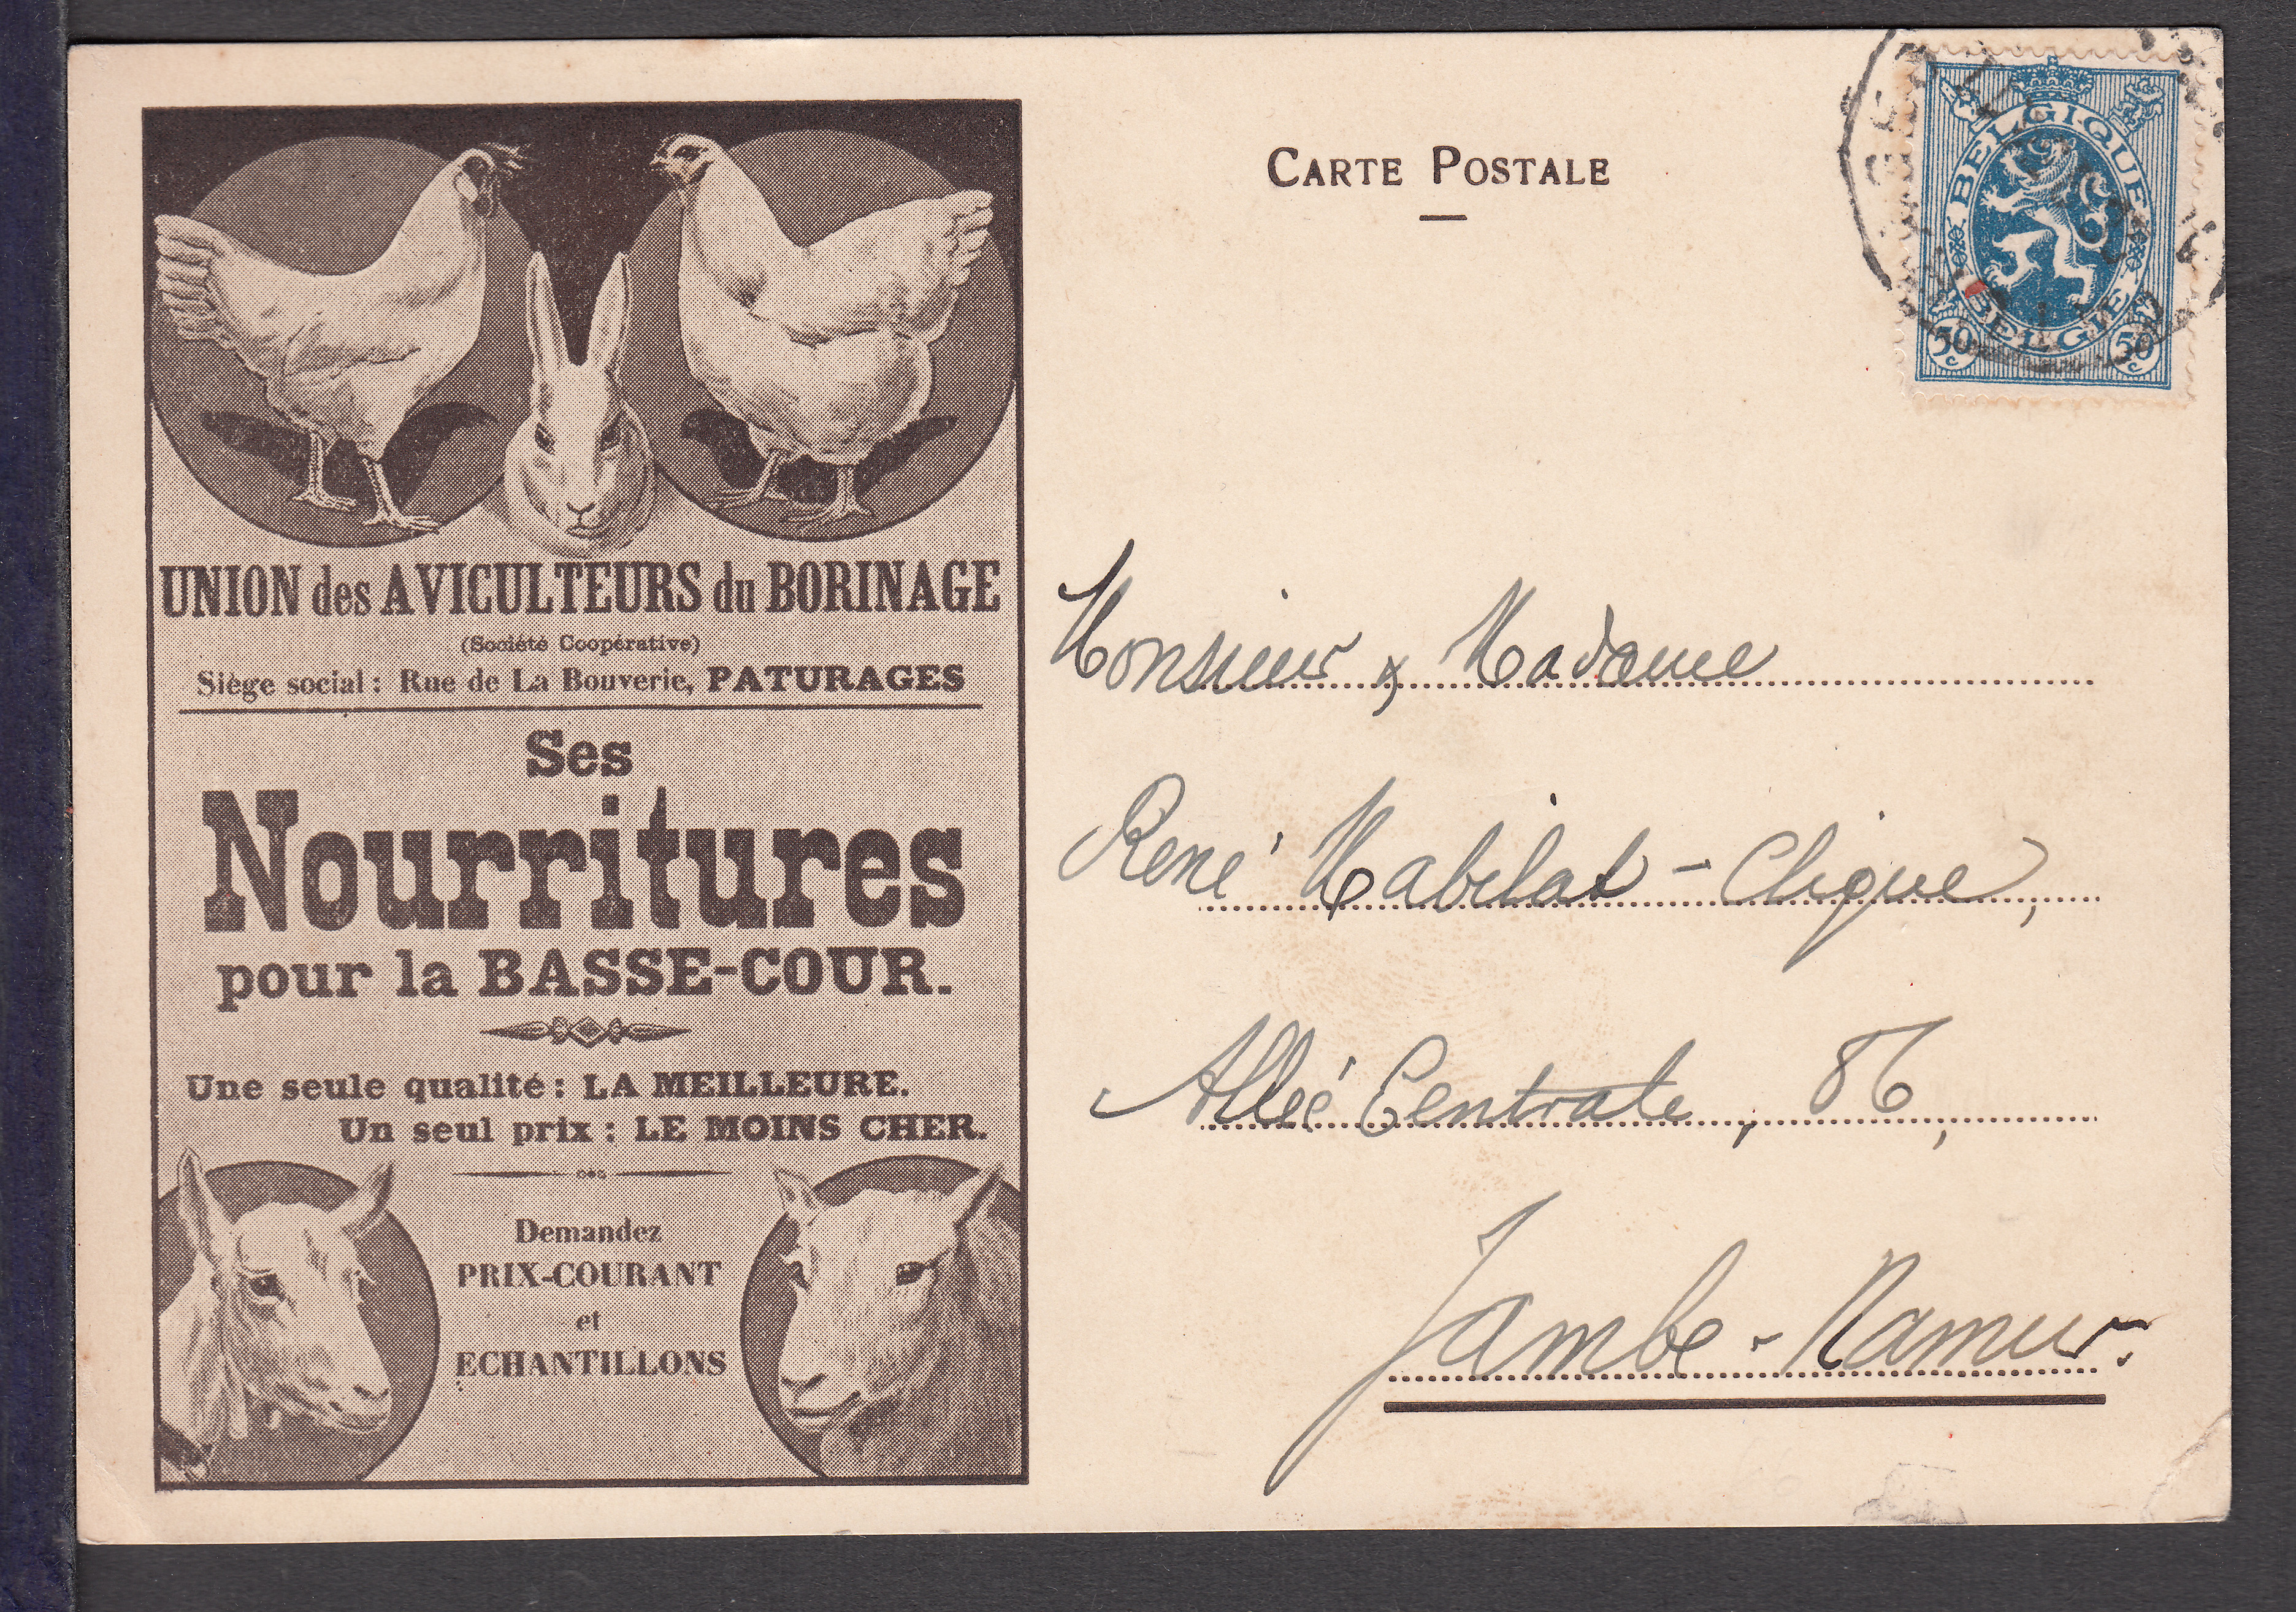 UNION des AVICULTEURS du BORINAGE
(Société Coopérative)
Siège social : Rue de La Bouverie, PATURAGES
Ses
Nourritures
pour la BASSE-COUR.
Une seule qualité : LA MEILLEURE.
Un seul prix : LE MOINS CHER.
Demandez
PRIX-COURANT
et
ECHANTILLONS
CARTE POSTALE
BELGIQUE
BELGIË
50 c 50 c
Monsieur & Madame
René Mabilat - Clique,
Allée Centrale, 86,
Jambe - Namur.